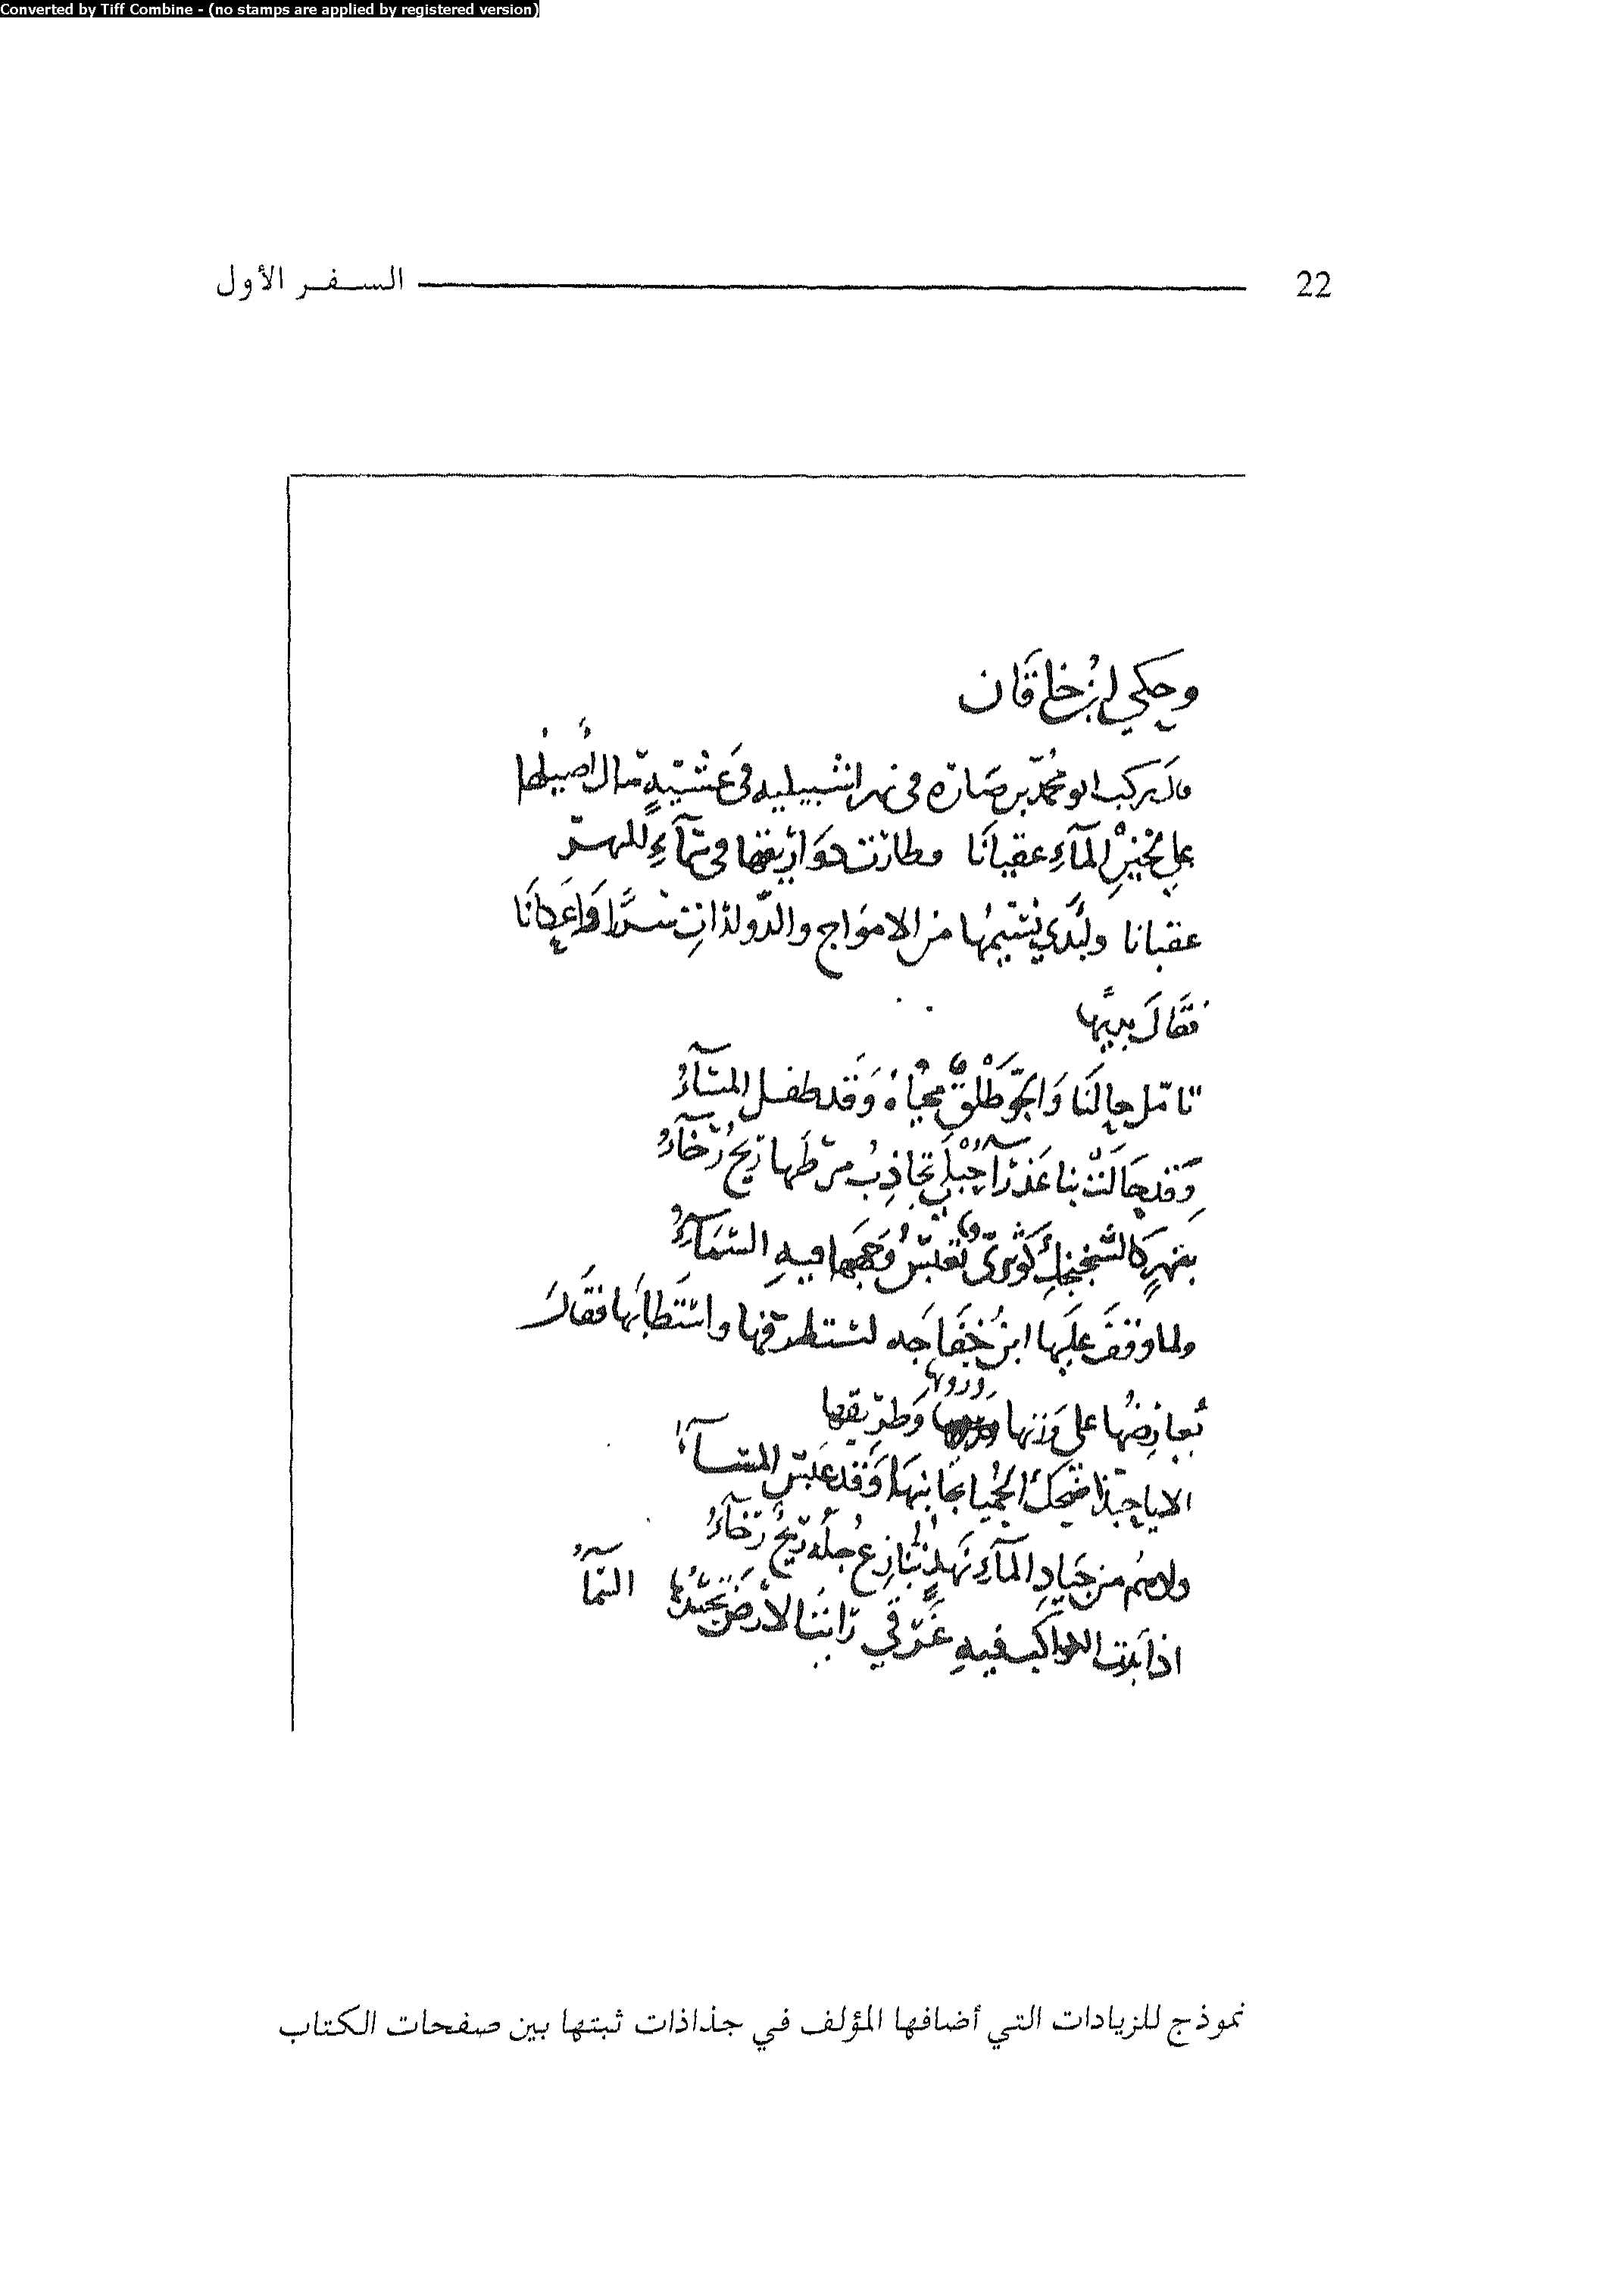 Converted by Tiff Combine - (no stamps are applied by registered version)
22 السـفـر الأول
وحكي ابن خاقان
قال ركب ابو محمد بن صارة في نهر اشبيلية في عَشيّةٍ سال أصيلها
على لجين المآءِ عقيانا وطارت زواريقها في سمآءِ النهر
عقبانا وابدي نسيمها من الامواج والدارات سررًا وَاَعكانَا
فقَالَ بديهًا
تامّل حالنَا وَالجوُّ طَلْقٌ محيّاهُ وَقد طفل المسَآءُ
وَقد جالَتْ بنا عَذرَآءُ حُبْلَى تجاذِبُ مرْطَها ريحٌ رُخآءُ
بنهرٍ كالسَّجنجلِ كَوثريٍّ تعبّسُ وَجهها فيهِ السّمَآءُ
ولما وقفَ عليها ابنُ خفَاجَه استظرفها واستَطابَها فقَالَ
يُعارضُها على وَزنها ورويها وَطرِيقها
الا يا حبّذا ضَحكُ الحُميا بحانِتهَا وَقد عَبَسَ المسَآءُ
وادهم من جيَادِ المآءِ نَهدٍ تُنازِع جلّه ريحٌ رُخآءُ
اذا بَدَت الكواكب فيهِ غَرْقي رَايْتَ الارْضَ تحسُدُها السّمآُ
نموذج للزيادات التي أضافها المؤلف في جذاذات ثبتها بين صفحات الكتاب